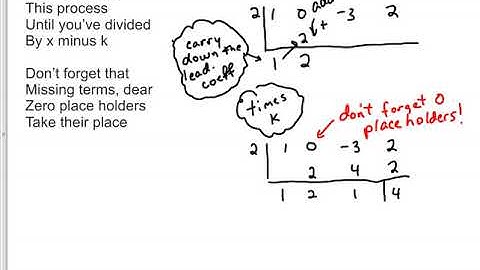 This process
Until you've divided
By x minus k
Don't forget that
Missing terms, dear
Zero place holders
Take their place
2 1 0 -3 2
2 +
1 2
carry
down the
lead.
coeff
times
k
don't forget 0
place holders!
2 1 0 -3 2
2 4 2
1 2 1 4